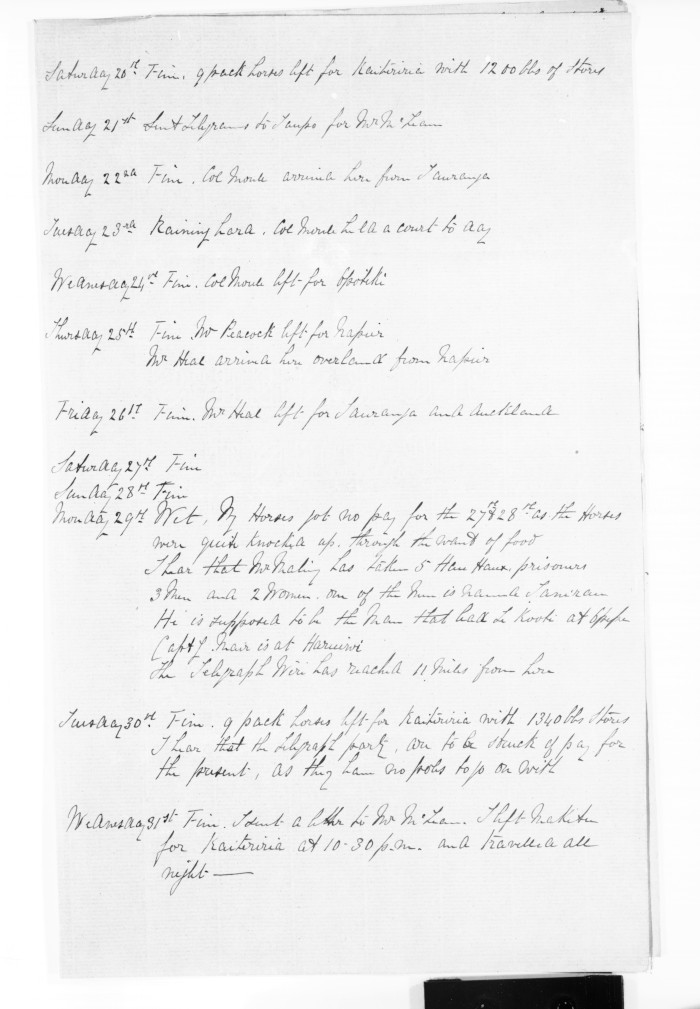 Saturday 20th Fine. 9 pack horses left for Kaiteriria with 1200 lbs of Stores
Sunday 21st Sent Telegrams to Taupo for Mr McLean
Monday 22nd Fine. Col Moule arrived here from Tauranga
Tuesday 23rd Raining hard. Col Moule held a court to day
Wednesday 24th Fine. Col Moule left for Opotiki
Thursday 25th Fine Mr Peacock left for Napier
Mr Heal arrived here overland from Napier
Friday 26th Fine. Mr Heal left for Tauranga and Auckland
Saturday 27th Fine
Sunday 28th Fine
Monday 29th Wet, My Horses got no pay for the 27th & 28th as the Horses
were quite knocked up. through the want of food
I hear that Mr Maling has taken 5 Hau Haux prisoners
3 Men and 2 Women. one of the Men is named
He is supposed to be the Man that lead Te Kooti at Opepe
Capt G. Mair is at
The Telegraph Wire has reached 11 Miles from here
Tuesday 30th Fine. 9 pack horses left for Kaiteriria with 1340 lbs Stores
I hear that the Telegraph party, are to be struck of pay for
the present, as they have no poles to go on with
Wednesday 31st Fine. I sent a letter to Mr McLean. I left Maketu
for Kaiteriria at 10-30 p.m. and travelled all
night —